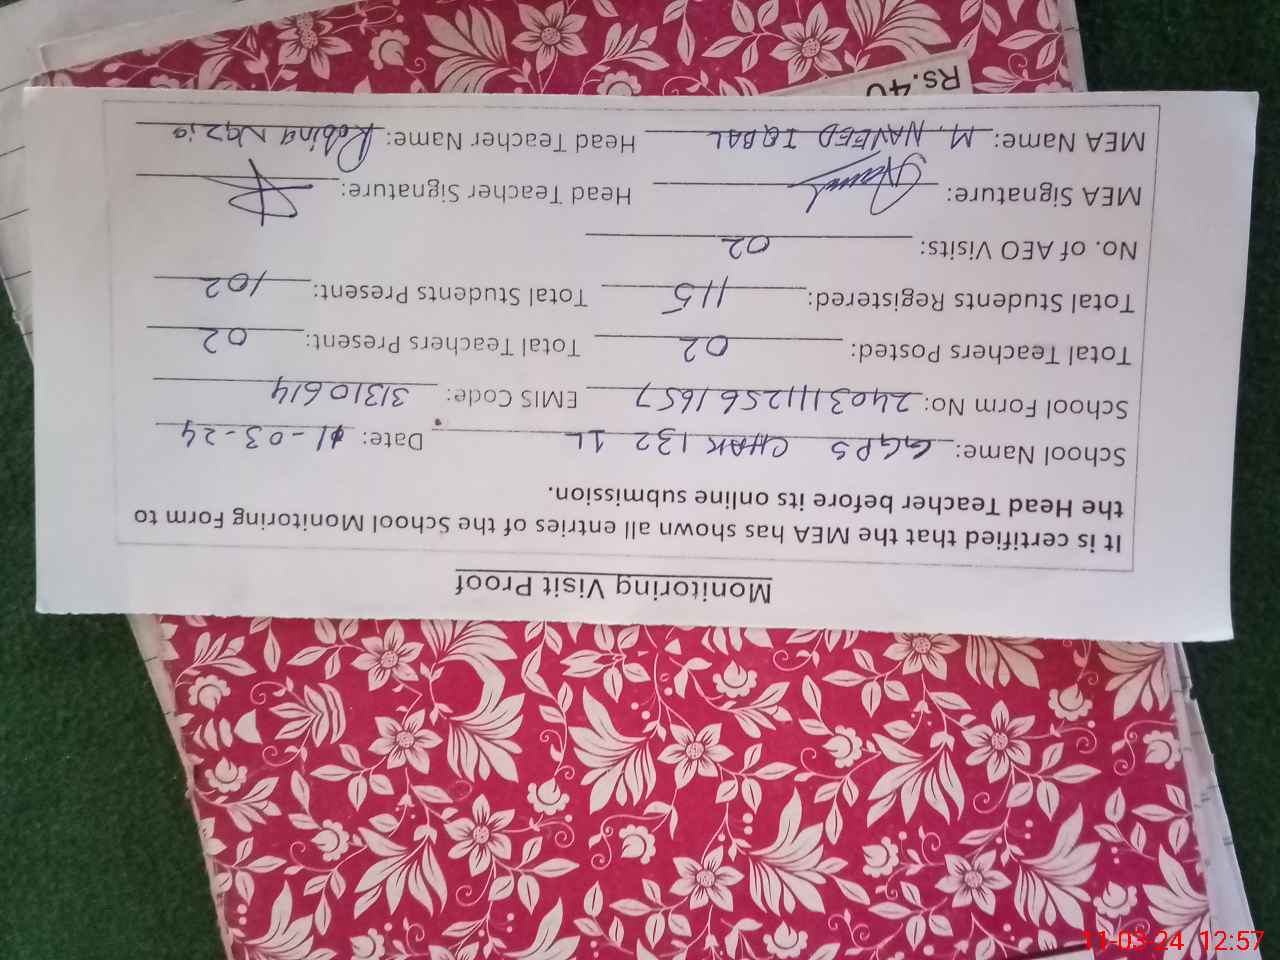 Monitoring Visit Proof
It is certified that the MEA has shown all entries of the School Monitoring Form to
the Head Teacher before its online submission.
School Name: GGPS CHAK 132 1L Date: 11-03-24
School Form No: 24031112561657 EMIS Code: 31310614
Total Teachers Posted: 02 Total Teachers Present: 02
Total Students Registered: 115 Total Students Present: 102
No. of AEO Visits: 02
MEA Signature: Head Teacher Signature:
MEA Name: M. NAVEED IQBAL Head Teacher Name: Robina Nazia
Rs.40
11-03-24 12:57